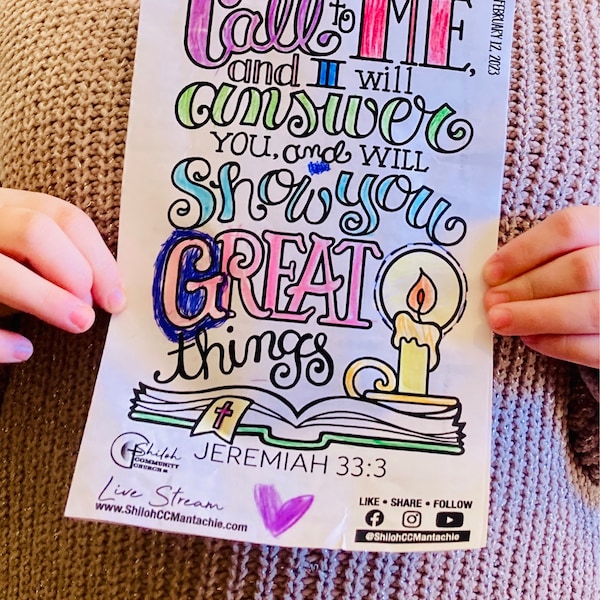 Call to ME,
and I will
answer
YOU, and WILL
Show you
GREAT
things
JEREMIAH 33:3
Shiloh
COMMUNITY
CHURCH
Live Stream
www.ShilohCCMantachie.com
LIKE • SHARE • FOLLOW
@ShilohCCMantachie
FEBRUARY 12, 2023